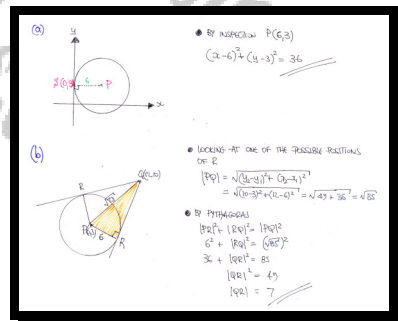 (a)
y
S(0,3)
6
P
x
• BY INSPECTION P(6,3)
(x-6)² + (y-3)² = 36
(b)
Q(12,10)
R
√85
P(6,3)
6
R
• LOOKING AT ONE OF THE POSSIBLE POSITIONS
OF R
|PQ| = √(y₂-y₁)² + (x₂-x₁)²
= √(10-3)² + (12-6)² = √49 + 36 = √85
• BY PYTHAGORAS
|PR|² + |RQ|² = |PQ|²
6² + |RQ|² = (√85)²
36 + |QR|² = 85
|QR|² = 49
|QR| = 7